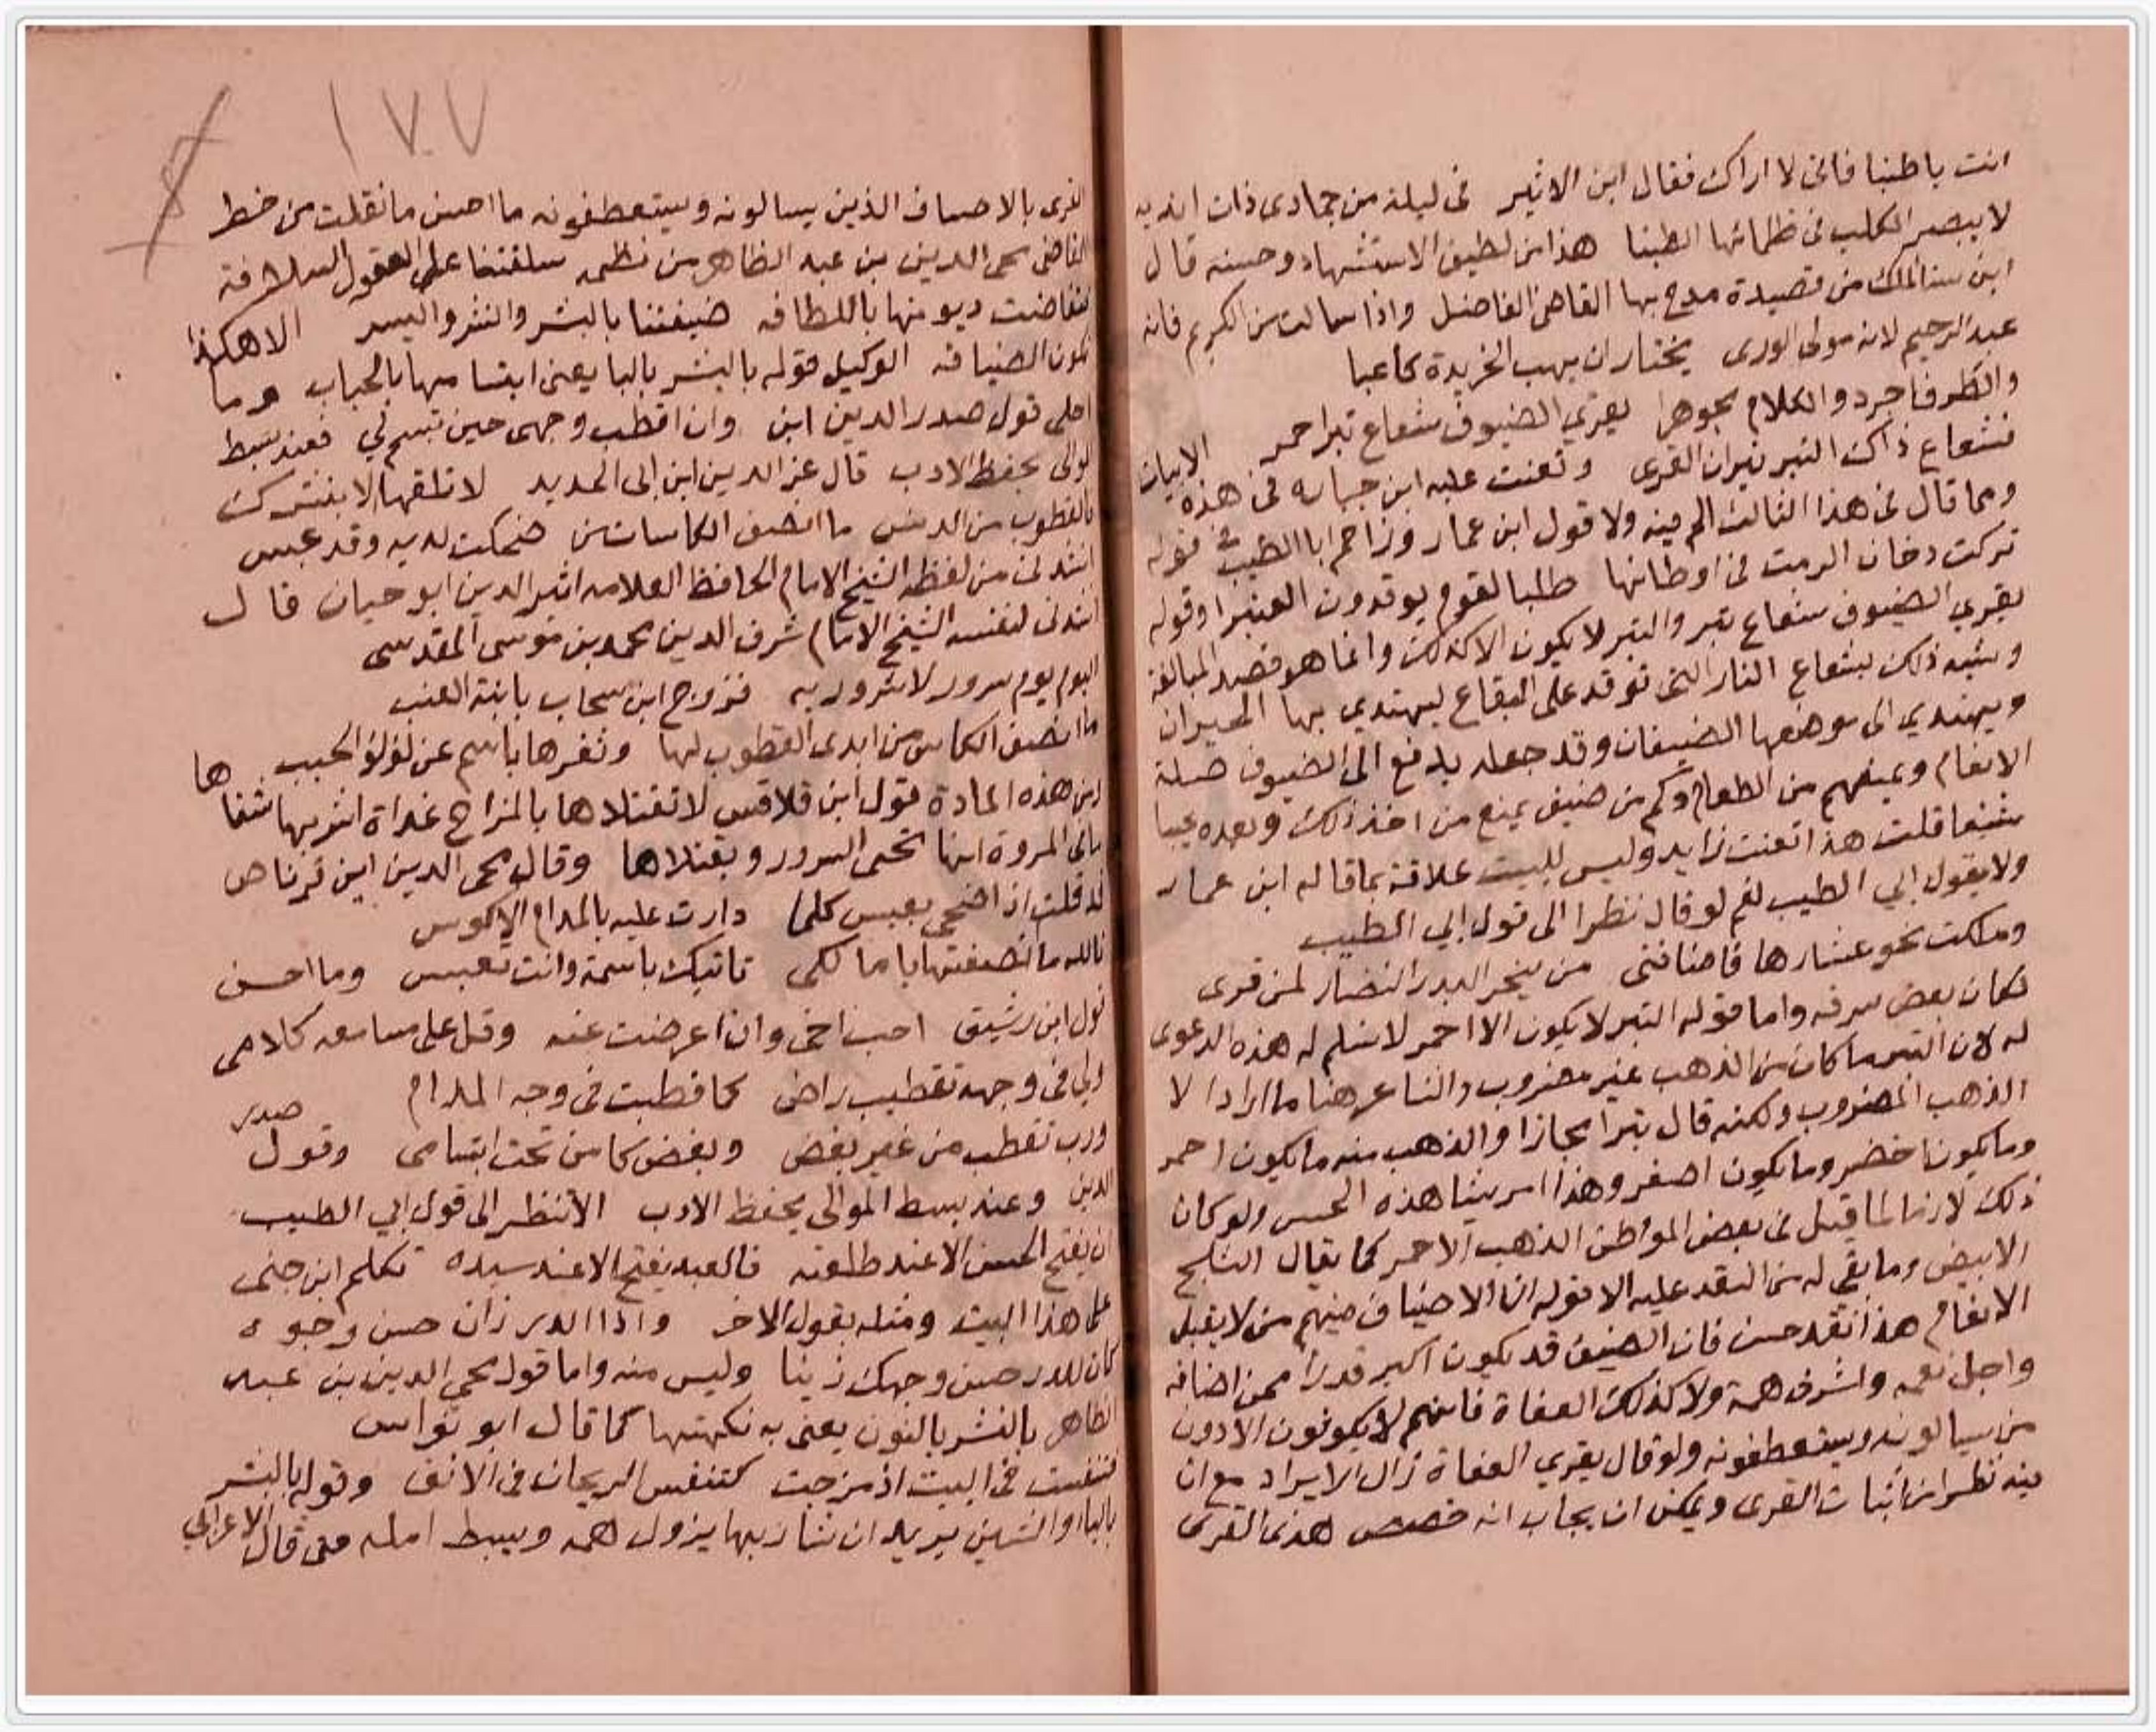 انت باطنبا فانى لا اراك فقال ابن الاثير فى ليلة من جمادى ذات اندية
لا يبصر الكلب فى ظلمائها الطنبا هذا من لطيف الاستشهاد وحسنه قال
ابن سنا الملك من قصيدة مدح بها القاضى الفاضل واذا سالت من الكريم فانه
عبد الرحيم لانه مولى الورى يختار ان يهب الخريدة كاعبا
والطرف اجرد والكلام مجوهرا يقري الضيوف شعاع تبر احمر
فشعاع ذاك التبر نيران القرى وتعنت عليه ابن جباره فى هذه الابيات
ومما قال فى هذا الثالث الم فيه ولا قول ابن عمار وزاحم ابا الطيب فى قوله
تركت دخان الرمث فى اوطانها طلبا لقوم يوقدون العنبرا وقوله
يقري الضيوف شعاع تبر والتبر لا يكون الا كذلك وانما هو قصد المبالغة
وشبه ذلك بشعاع النار التى توقد على البقاع ليهتدي بها الحيران
ويهتدي الى موضعها الضيفان وقد جعله يدفع الى الضيوف صلة
الانعام ويمنعهم من الطعام وكم من ضيف يمنع من اخذ ذلك وبعده عيبا
شنعا قلت هذا تعنت زايد وليس للبيت علاقة بما قاله ابن عمار
ولا بقول ابي الطيب نعم لو قال نظرا الى قول ابي الطيب
ومللت نحو عشارها فاضافنى من ينحر البدر النضار لمن قرى
لكان بعض سرقه واما قوله التبر لا يكون الا احمر لا نسلم له هذه الدعوى
له لان التبر ما كان من الذهب غير مضروب والشاعر هنا ما اراد الا
الذهب المضروب ولكنه قال تبرا مجازا والذهب منه ما يكون احمر
وما يكون اخضر وما يكون اصفر وهذا امر يشاهده الحس ولو كان
ذلك لازما لما قيل فى بعض المواطن الذهب الاحمر كما يقال الثلج
الابيض وما بقى له من النقد عليه الا قوله ان الاضياف منهم من لا يقبل
الانعام هذا نقد حسن فان الضيف قد يكون اكبر قدرا ممن اضافه
واجل نعمه واشرف همة ولا كذلك العفاة فانهم لا يكونون الا دون
من يسالونه ويستعطفونه ولو قال يقري العفاة زال الايراد مع ان
فيه نظر من اثبات القرى ويمكن ان يجاب انه خصص هذى القرى
١٧٧
القرى بالاصناف الذين يسالونه ويستعطفونه ما احسن ما نقلت من خط
القاضى محى الدين بن عبد الظاهر من نظمه سلفتنا على العقول السلافة
فتقاضت ديونها باللطافه ضيفتنا بالبشر والنشر واليسر الا هكذا
تكون الضيافه الوكيل قوله بالبشر بالبا يعنى ابتسامها بالحباب وما
احلى قول صدر الدين ابن وان اقطب وجهى حين تبسم لي فعند بسط
الموالى يحفظ الادب قال عز الدين ابن ابى الحديد لا تلقها الا ببشرك
فالقطوب من الدنس ما انصف الكاسات من ضحكت لديه وقد عبس
انشدنى من لفظه الشيخ الامام الحافظ العلامه اثير الدين ابو حيان قال
انشدنى لنفسه الشيخ الامام شرف الدين محمد بن موسى المقدسى
اليوم يوم سرور لا شرور به فزوج ابن سحاب بابنة العنب
ما انصف الكاس من ابدى القطوب لها وثغرها باسم عن لؤلؤ الحبب
ومن هذه المادة قول ابن قلاقس لا تقتلاها بالمزاج غداة اشربها شفاها
تالى المروة انها تحى السرور ويقتلاها وقال محى الدين ابن قرناص
قد قلت اذ اضحى يعبس كلما دارت عليه بالمدام الاكوس
تالله ما انصفتها يا مالكى تاتيك باسمة وانت تعبس وما احسن
قول ابن رشيق احب اخى وان اعرضت عنه وقل على مسامعه كلامى
ولى فى وجهه تقطيب راض كما قطبت فى وجه المدام
ورب تقطب من غير بغض وبغض كامن تحت ابتسامى وقول صدر
الدين وعند بسط الموالى يحفظ الادب الا نظر الى قول ابي الطيب
ان يقبح الحسن الا عند طلعته فالعبد يقبح الا عند سيده تكلم ابن جنى
على هذا البيت ومثله بقول الاخر واذا الدر زان حسن وجوه
كان للدر حسن وجهك زينا وليس منه واما قول محى الدين بن عبد
الظاهر بالنشر بالنون يعنى به نكهتها كما قال ابو نواس
فتنفست فى البيت اذ مزجت كتنفس الريحان فى الانف وقوله بالبشر
بالبا والشين يريد ان شاربها يزول همه ويبسط امله فمن قال الاعرابي